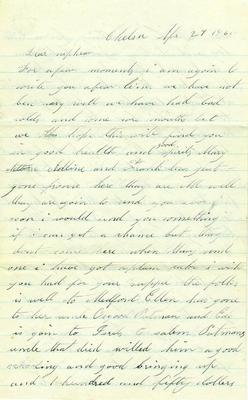 Chelsea Apr 27 186
Dear nephew
For a few moments i am again to
write you a few lines we have not
ben very well we have had bad
colds and some sore mouths but
we hope this will find you
in good health and good spirits Mary
Adline and Frank has just
gone from here they are all well
they are goin to send you a box
soon i would send you something
if i can get a chance but they
dont come here when they send
one i have got aplenty i wish
you had for your supper the folks
is well to Medford Ellen has gone
to her uncle Osgood Putnam and
is goin to Fords to salem Putmons
uncle that died willed him a good
schooling and good bringing up
and 1 hundred and fifty dollars